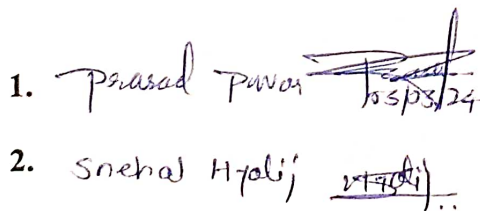 1. Prasad Pavar 05/03/24
2. Snehal Hyalij